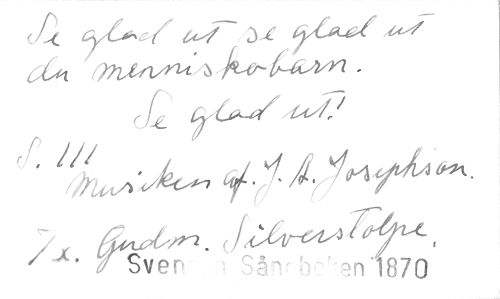 Se glad ut se glad ut
du menniskobarn.
Se glad ut!
S. 111
Musiken af. J. A. Josephson.
Tx. Gudm. Silverstolpe.
Svenska Sångboken 1870